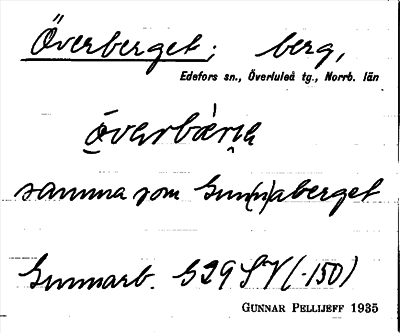 Överberget; berg,
Edefors sn., Överluleå tg., Norrb. län
samma som Gun(n)aberget
Gunnarb. 529 SV (-150)
GUNNAR PELLIJEFF 1935